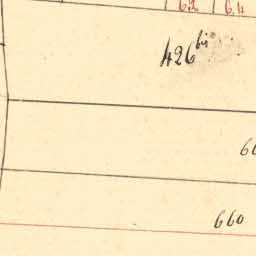 62 64
426 bis
660